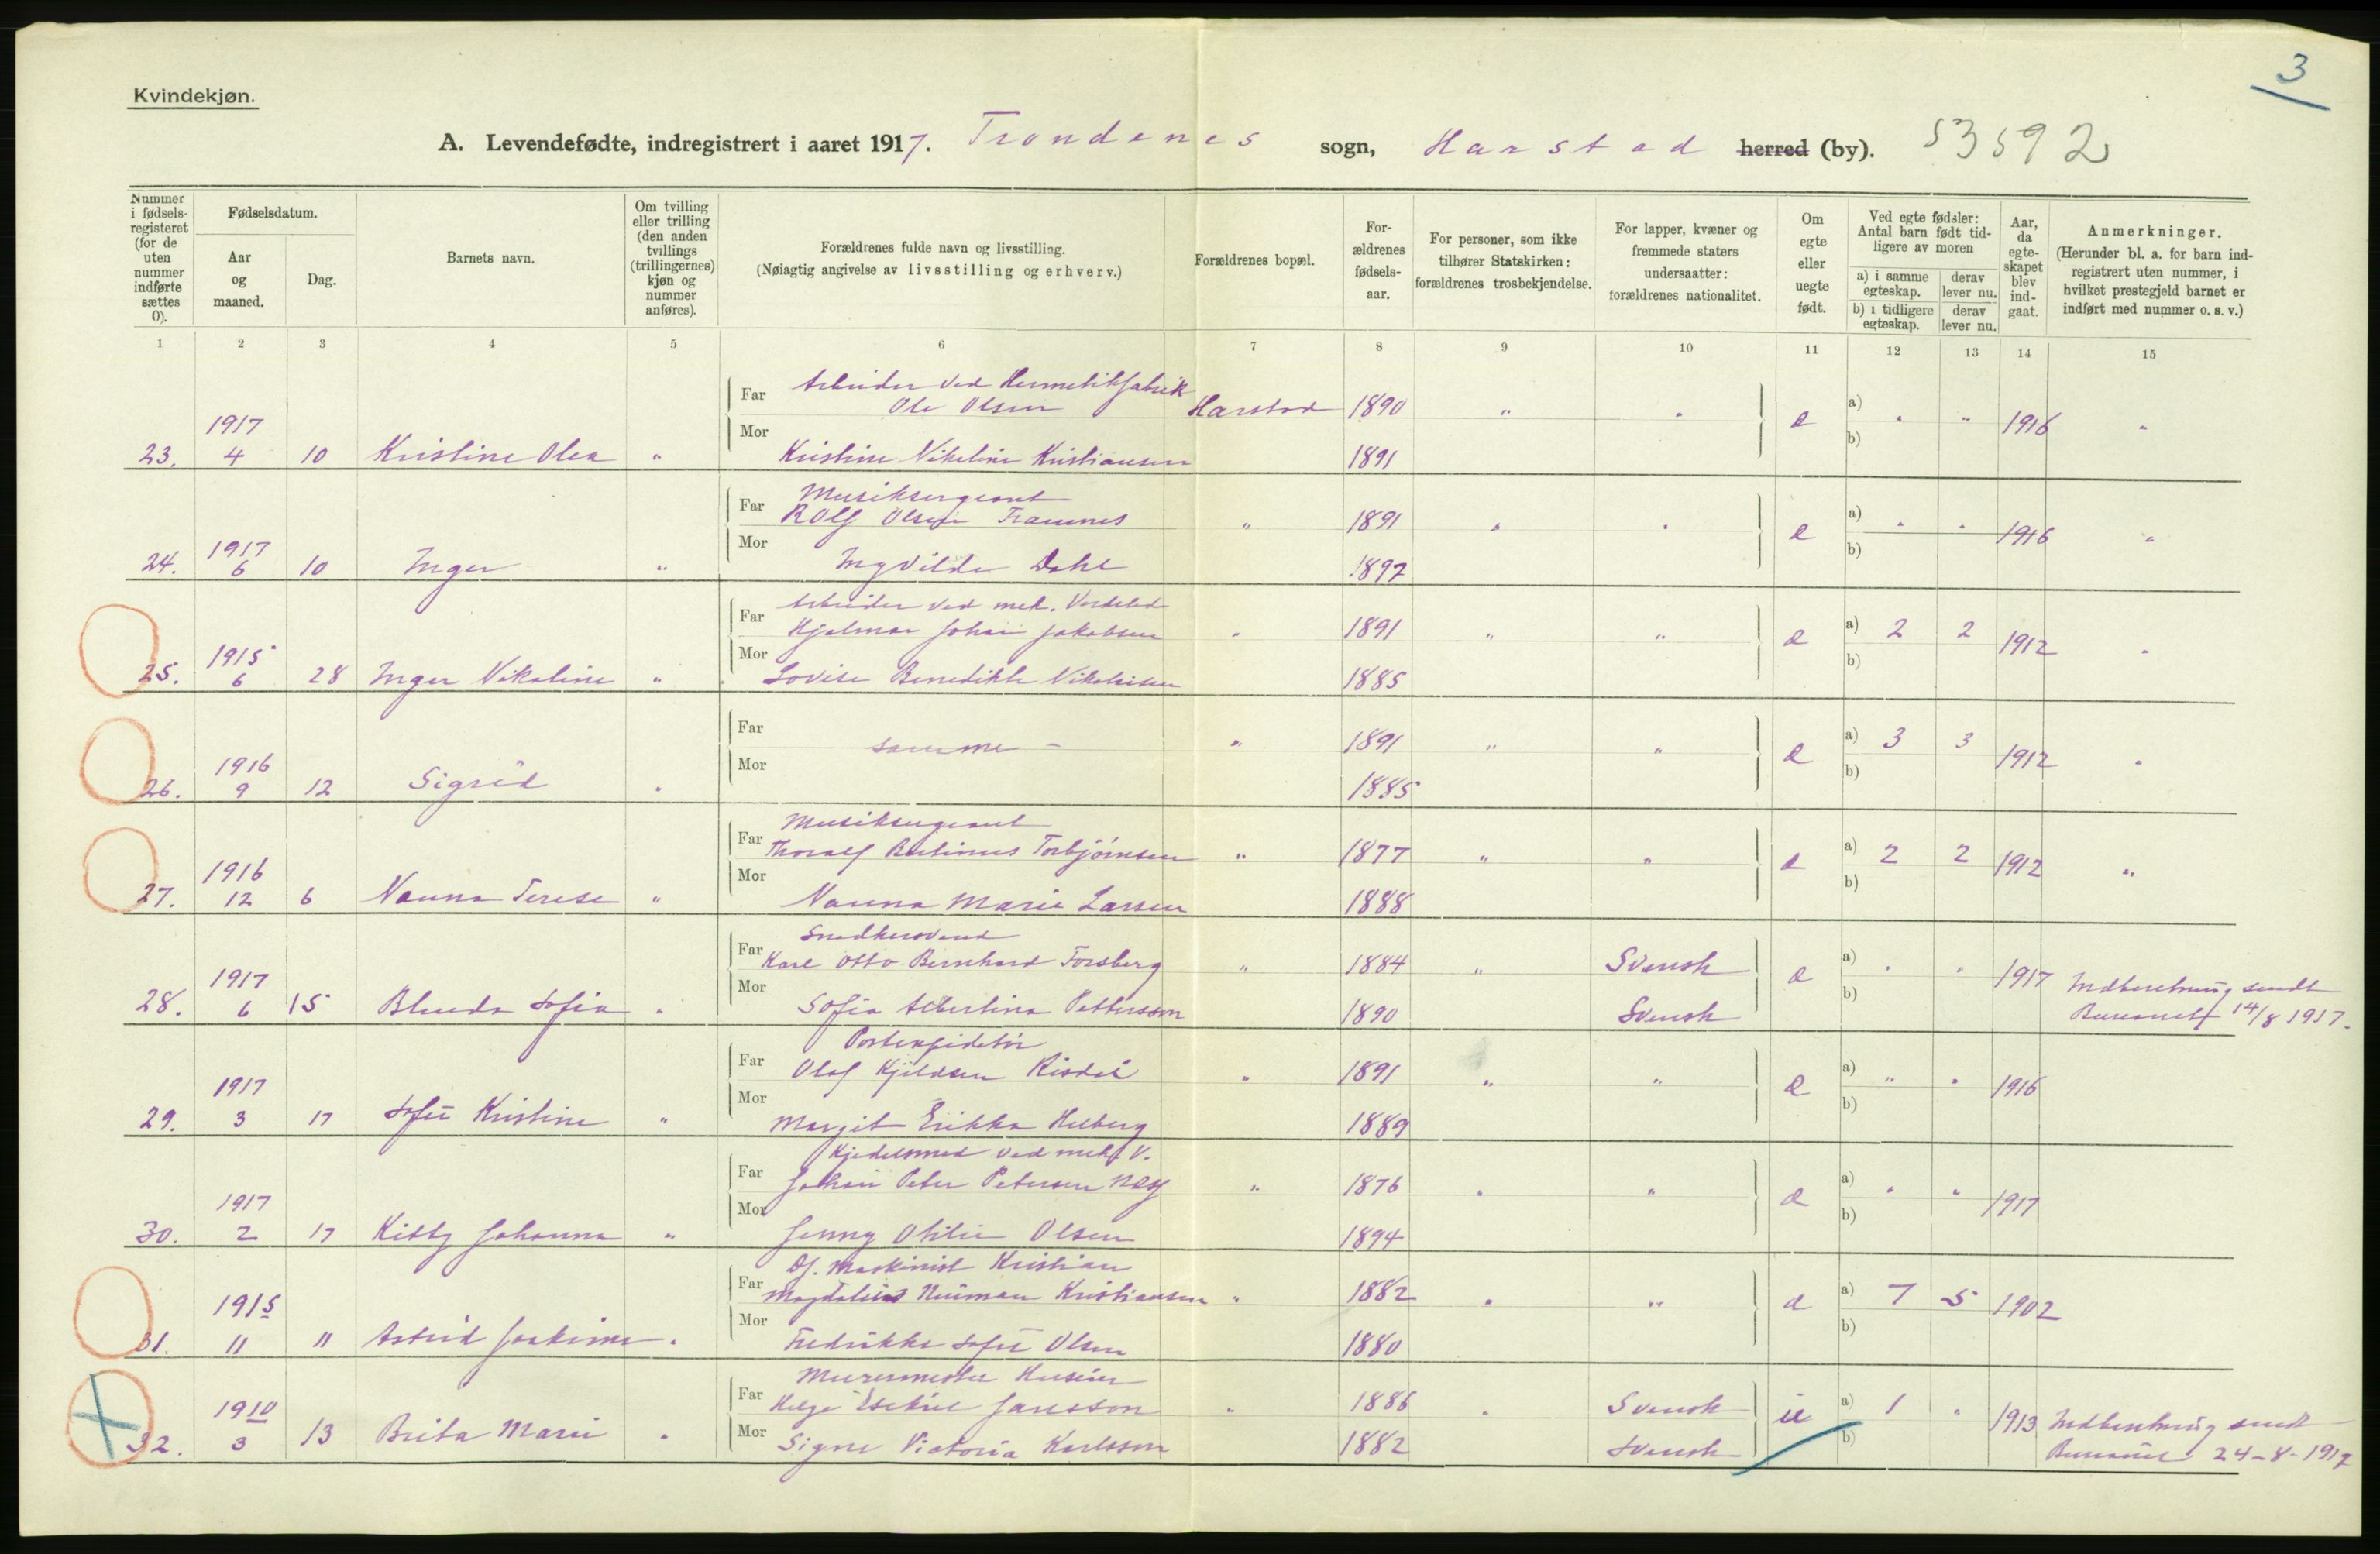 3
Kvindekjøn.
A. Levendefødte, indregistrert i aaret 1917. Trondenes sogn, Harstad herred (by). 53592
Nummer i fødsels-registeret (for de uten nummer indførte sættes 0).
Fødselsdatum.
Aar og maaned.
Dag.
Barnets navn.
Om tvilling eller trilling (den anden tvillings (trillingernes) kjøn og nummer anføres).
Forældrenes fulde navn og livsstilling.
(Nøiagtig angivelse av livsstilling og erhverv.)
Forældrenes bopæl.
For-ældrenes fødsels-aar.
For personer, som ikke tilhører Statskirken: forældrenes trosbekjendelse.
For lapper, kvæner og fremmede staters undersaatter: forældrenes nationalitet.
Om egte eller uegte født.
Ved egte fødsler: Antal barn født tid-ligere av moren
a) i samme egteskap.
derav lever nu.
b) i tidligere egteskap.
derav lever nu.
Aar, da egte-skapet blev ind-gaat.
Anmerkninger.
(Herunder bl. a. for barn ind-registrert uten nummer, i hvilket prestegjeld barnet er indført med nummer o. s. v.)
1 2 3 4 5 6 7 8 9 10 11 12 13 14 15
Arbeider ved Hermetikfabrik
Far Ole Olsen Harstad 1890 " " e a) " " 1916 "
1917
Mor b)
23. 4 10 Kristine Olea " Kristine Nikoline Kristiansen 1891
Musiksergeant
Far Rolf Olsen Tramnes " 1891 " " e a) " " 1916 "
1917
Mor b)
24. 6 10 Inger " Ingvilda Dahl 1897
Arbeider ved mek. Verksted
Far Hjalmar Johan Jakobsen " 1891 " " e a) 2 2 1912 "
1915
Mor b)
25. 6 28 Inger Nikoline " Lovise Benedikte Nikolaisen 1885
Far samme - " 1891 " " e a) 3 3 1912 "
1916
Mor b)
26. 9 12 Sigrid " 1885
Musiksergeant
Far Thoralf Torbjørnsen " 1877 " " e a) 2 2 1912 "
1916
Mor b)
27. 12 6 Nanna Terese " Nanna Marie Larsen 1888
Snedkersvend
Far Karl Otto Bernhard Forsberg " 1884 " Svensk e a) " " 1917 Indberetning sendt
1917
Mor b)
28. 6 15 Blenda Sofia " Sofia Albertina Pettersson 1890 Svensk Bureauet 14/8 1917.
Postexpeditør
Far Olaf Kjeldsen Risdal " 1891 " " e a) " " 1916
1917
Mor b)
29. 3 17 Sofie Kristine " Margit Erikka Helberg 1889
Kjedelsmed ved mek. V.
Far Johan Peter Petersen " 1876 " " e a) " " 1917
1917
Mor b)
30. 2 17 Kitty Johanna " Jenny Otilie Olsen 1894
Df. Maskinist Kristian
Far Magdalius Neuman Kristiansen " 1882 " " e a) 7 5 1902
1915
Mor b)
31. 11 11 Astrid Joakime " Fredrikke Sofie Olsen 1880
Murermester Huseier
Far Helge Esekiel Jansson " 1886 " Svensk u a) 1 " 1913 Indberetning sendt
1910
Mor b)
32. 3 13 Brita Marie " Signe Victoria Karlsson 1882 Svensk Bureauet 24-8-1917